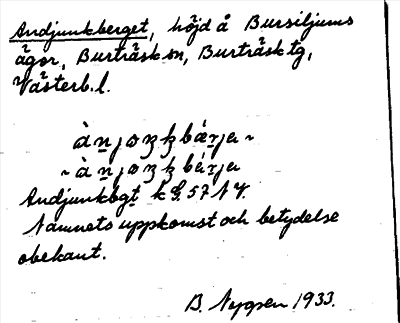 Andjunkberget, höjd å Bursiljums
ägor, Burträsk sn, Burträsk tg,
Västerb. l.
Andjunkbgt k G. 57 N V.
Namnets uppkomst och betydelse
obekant.
B. Nygren 1933.